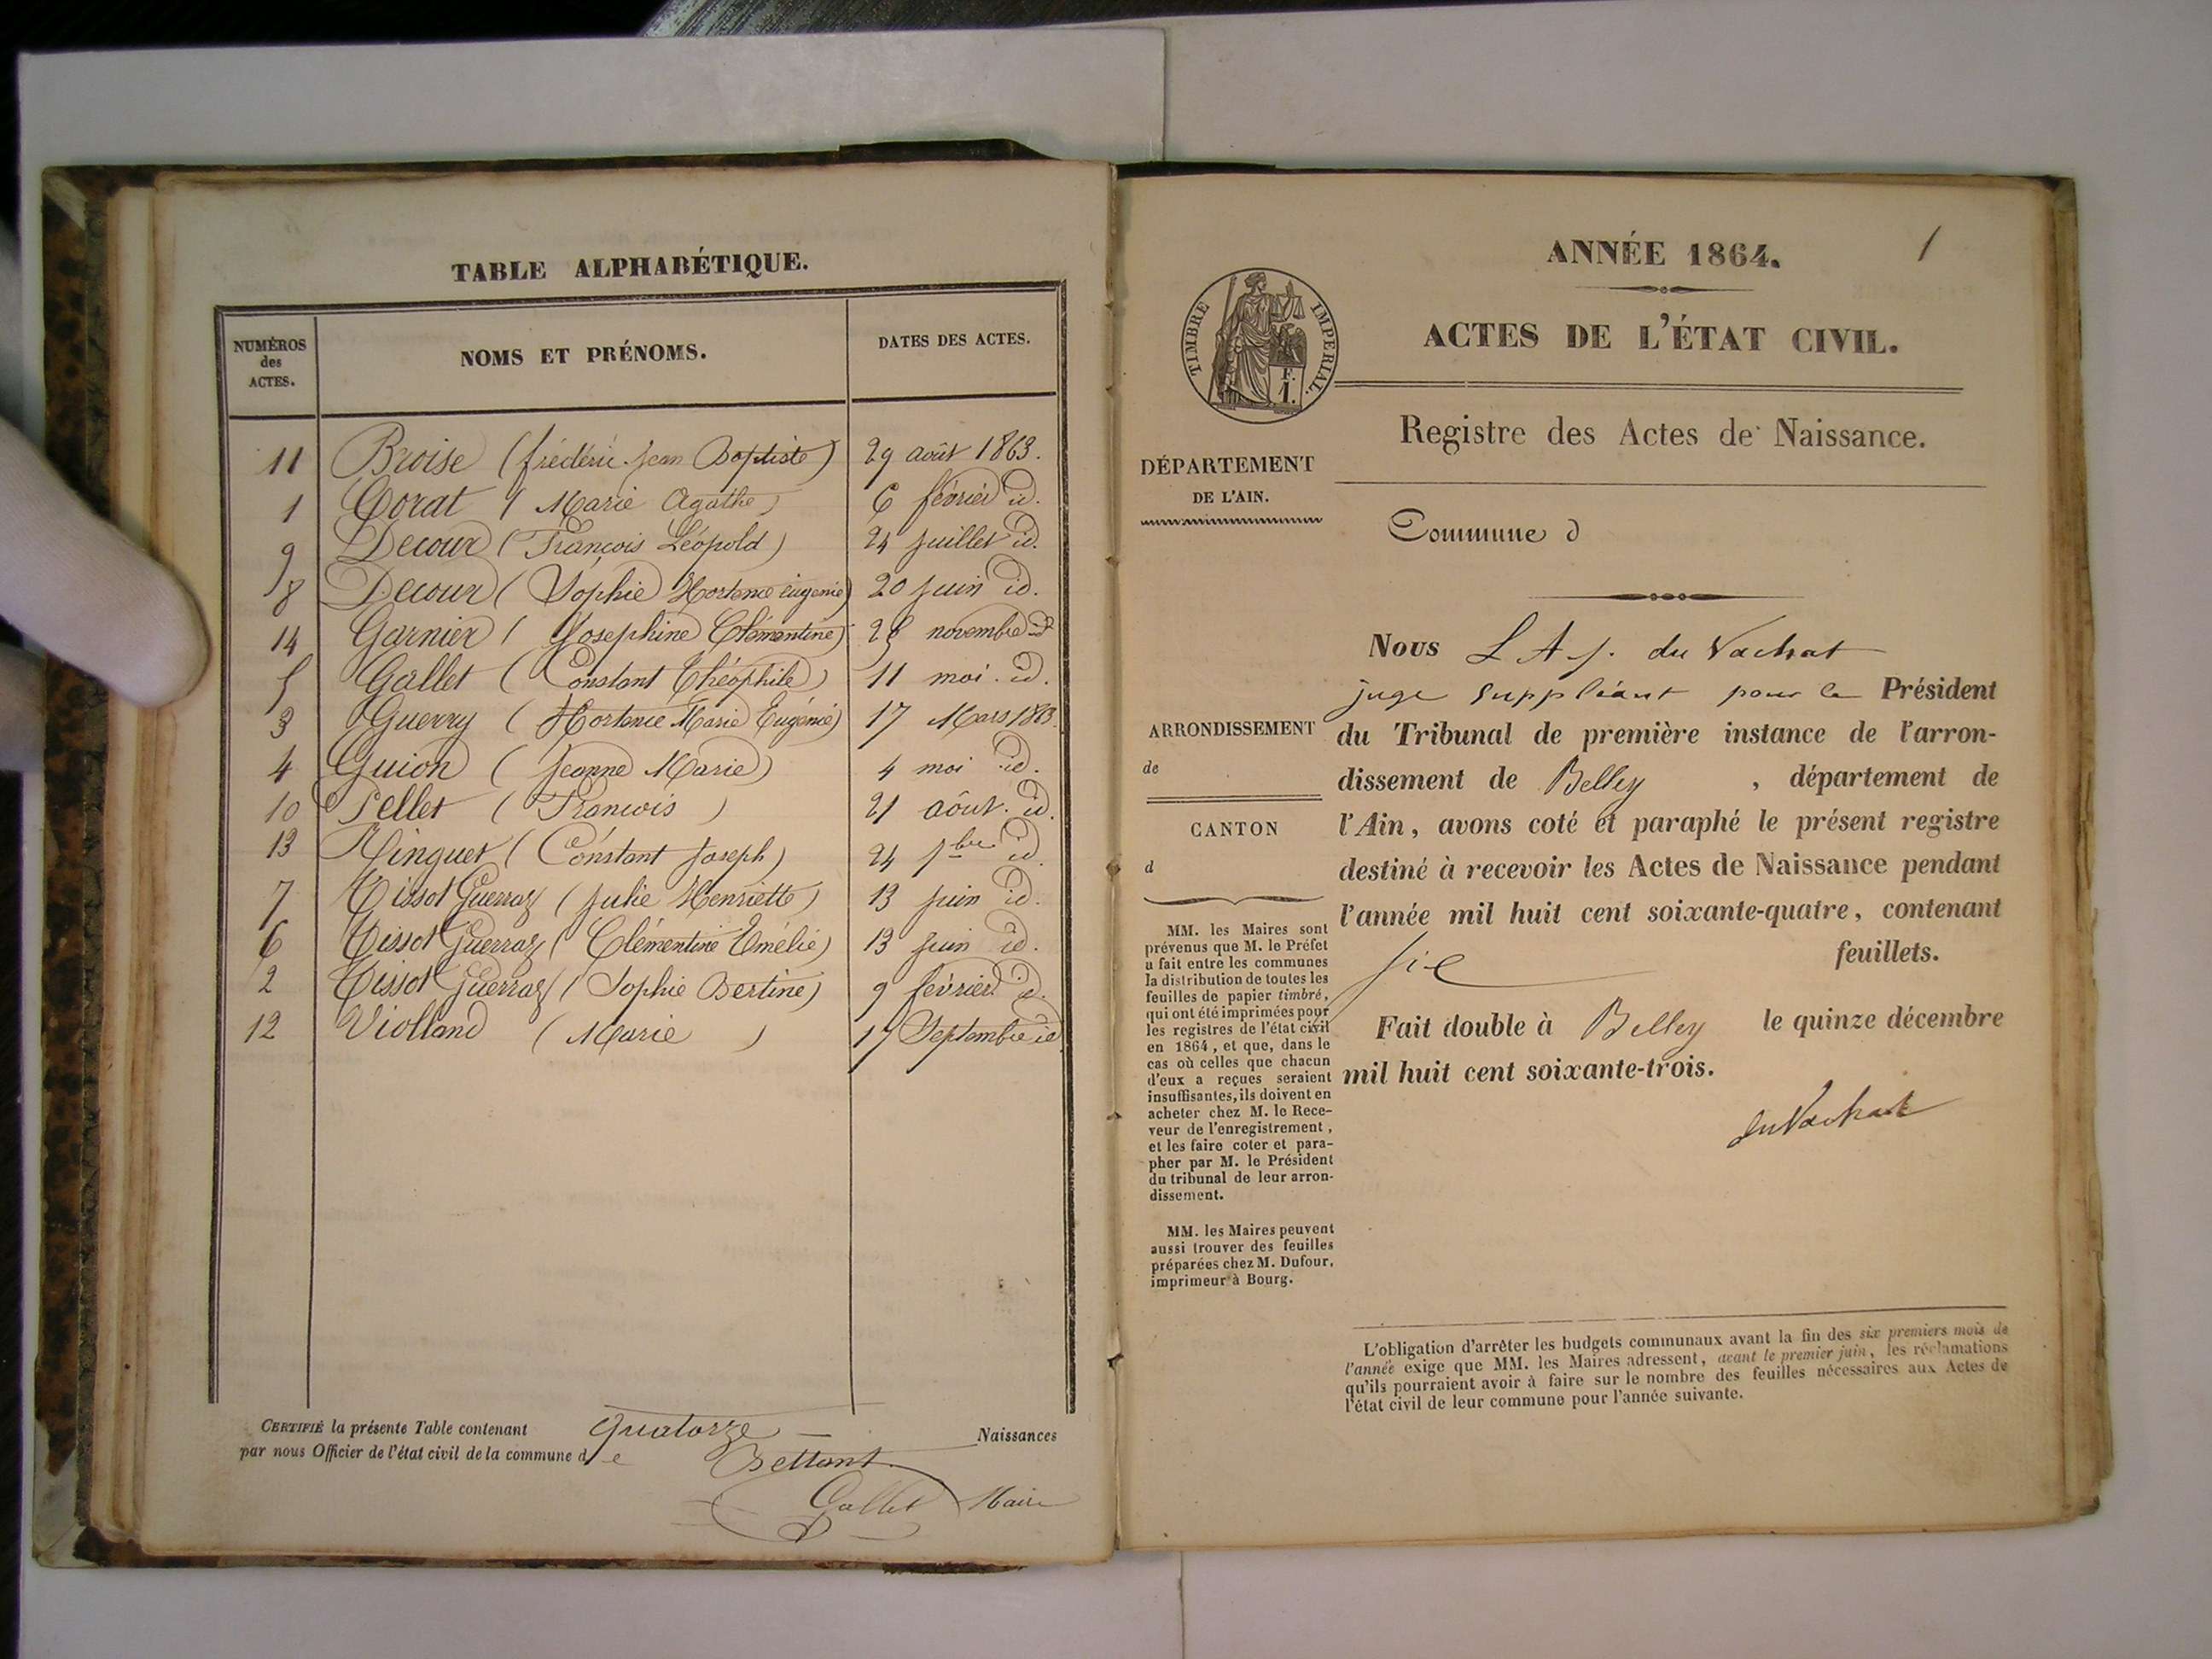 TABLE ALPHABÉTIQUE.
NUMÉROS des ACTES.
NOMS ET PRÉNOMS.
DATES DES ACTES.
11 Broise (frédéric Jean Baptiste) 29 août 1863.
1 Corat (Marie Agathe) 6 février id.
9 Decour (François Léopold) 24 juillet id.
8 Decour (Sophie Hortence Eugénie) 20 juin id.
14 Garnier (Josephine Clémentine) 28 novembre id
5 Gallet (Constant Théophile) 11 mai id.
3 Guerry (Hortence Marie Eugénie) 17 Mars 1863.
4 Guion (Jeanne Marie) 4 mai id.
10 Pellet (Francois) 21 aôut. id.
13 Ninguet (Constant Joseph) 24 7bre id.
7 Tissot Guerraz (Julie Henriette) 13 juin id.
6 Tissot Guerraz (Clémentine Emélie) 13 juin id.
2 Tissot Guerraz (Sophie Bertine) 9 février id.
12 Violland (Marie) 17 Septembre id
CERTIFIÉ la présente Table contenant quatorze Naissances
par nous Officier de l'état civil de la commune d e Bettant
Gallet Maire
1
ANNÉE 1864.
TIMBRE IMPERIAL.
F.
1.
ACTES DE L'ÉTAT CIVIL.
Registre des Actes de Naissance.
DÉPARTEMENT
DE L'AIN.
Commune d
ARRONDISSEMENT
de
CANTON
d
MM. les Maires sont
prévenus que M. le Préfet
a fait entre les communes
la distribution de toutes les
feuilles de papier timbré,
qui ont été imprimées pour
les registres de l'état civil
en 1864, et que, dans le
cas où celles que chacun
d'eux a reçues seraient
insuffisantes, ils doivent en
acheter chez M. le Rece-
veur de l'enregistrement,
et les faire coter et para-
pher par M. le Président
du tribunal de leur arron-
dissement.
MM. les Maires peuvent
aussi trouver des feuilles
préparées chez M. Dufour,
imprimeur à Bourg.
Nous L A J. du Vachat
juge suppléant pour le Président
du Tribunal de première instance de l'arron-
dissement de Belley , département de
l'Ain, avons coté et paraphé le présent registre
destiné à recevoir les Actes de Naissance pendant
l'année mil huit cent soixante-quatre, contenant
six feuillets.
Fait double à Belley le quinze décembre
mil huit cent soixante-trois.
du Vachat
L'obligation d'arrêter les budgets communaux avant la fin des six premiers mois de
l'année exige que MM. les Maires adressent, avant le premier juin, les réclamations
qu'ils pourraient avoir à faire sur le nombre des feuilles nécessaires aux Actes de
l'état civil de leur commune pour l'année suivante.